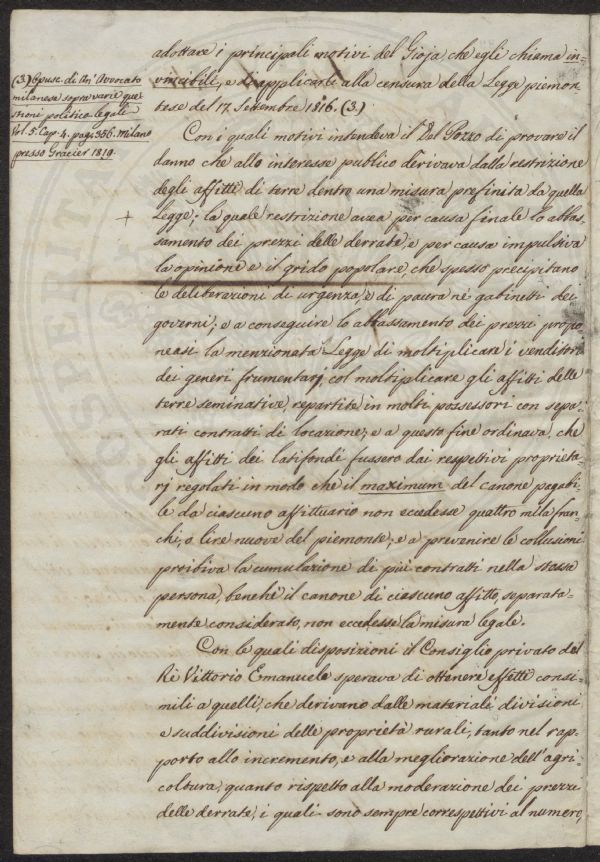 (3.) Opusc. di Un' Avvocato
milanese sopra varie que=
stioni politico-legali
Vol. 5. Cap. 4. pag. 356. Milano
presso Gracier 1819.
adottare i principali motivi del Gioja che egli chiama in=
vincibili, e di applicarli alla censura della Legge piemon=
tese del 17. Settembre 1816. (3.)
Con i quali motivi intendeva il Del Pozzo di provare il
danno che allo interesse publico derivava dalla restrizione
degli affitti di terre dentro una misura prefinita da quella
Legge; la quale restrizione avea per causa finale lo abbas=
samento dei prezzi delle derrate, e per causa impulsiva
la opinione e il grido popolare, che spesso precipitano
le deliberazioni di urgenza, e di paura né gabinetti dei
governi; e a conseguire lo abbassamento dei prezzi propo=
neasi la menzionata Legge di moltiplicare i venditori
dei generi frumentarj col moltiplicare gli affitti delle
terre seminative, repartite in molti possessori con sepa=
rati contratti di locazione; e a questo fine ordinava, che
gli affitti dei latifondi fussero dai respettivi proprieta=
rj regolati in modo che il maximum del canone pagabi=
le da ciascuno affittuario non eccedesse quattro mila fran=
chi, o lire nuove del piemonte; e a prevenire le collusioni
proibiva la cumulazione di più contratti nella stessa
persona, benchè il canone di ciascuno affitto, separata=
mente considerato, non eccedesse la misura legale.
Con le quali disposizioni il Consiglio privato del
Rè Vittorio Emanuele sperava di ottenere effetti consi=
mili a quelli, che derivano dalle materiali divisioni
e suddivisioni delle proprietà rurali, tanto nel rap=
porto allo incremento, e alla megliorazione dell'agri=
coltura, quanto rispetto alla moderazione dei prezzi
delle derrate, i quali sono sempre correspettivi al numero,